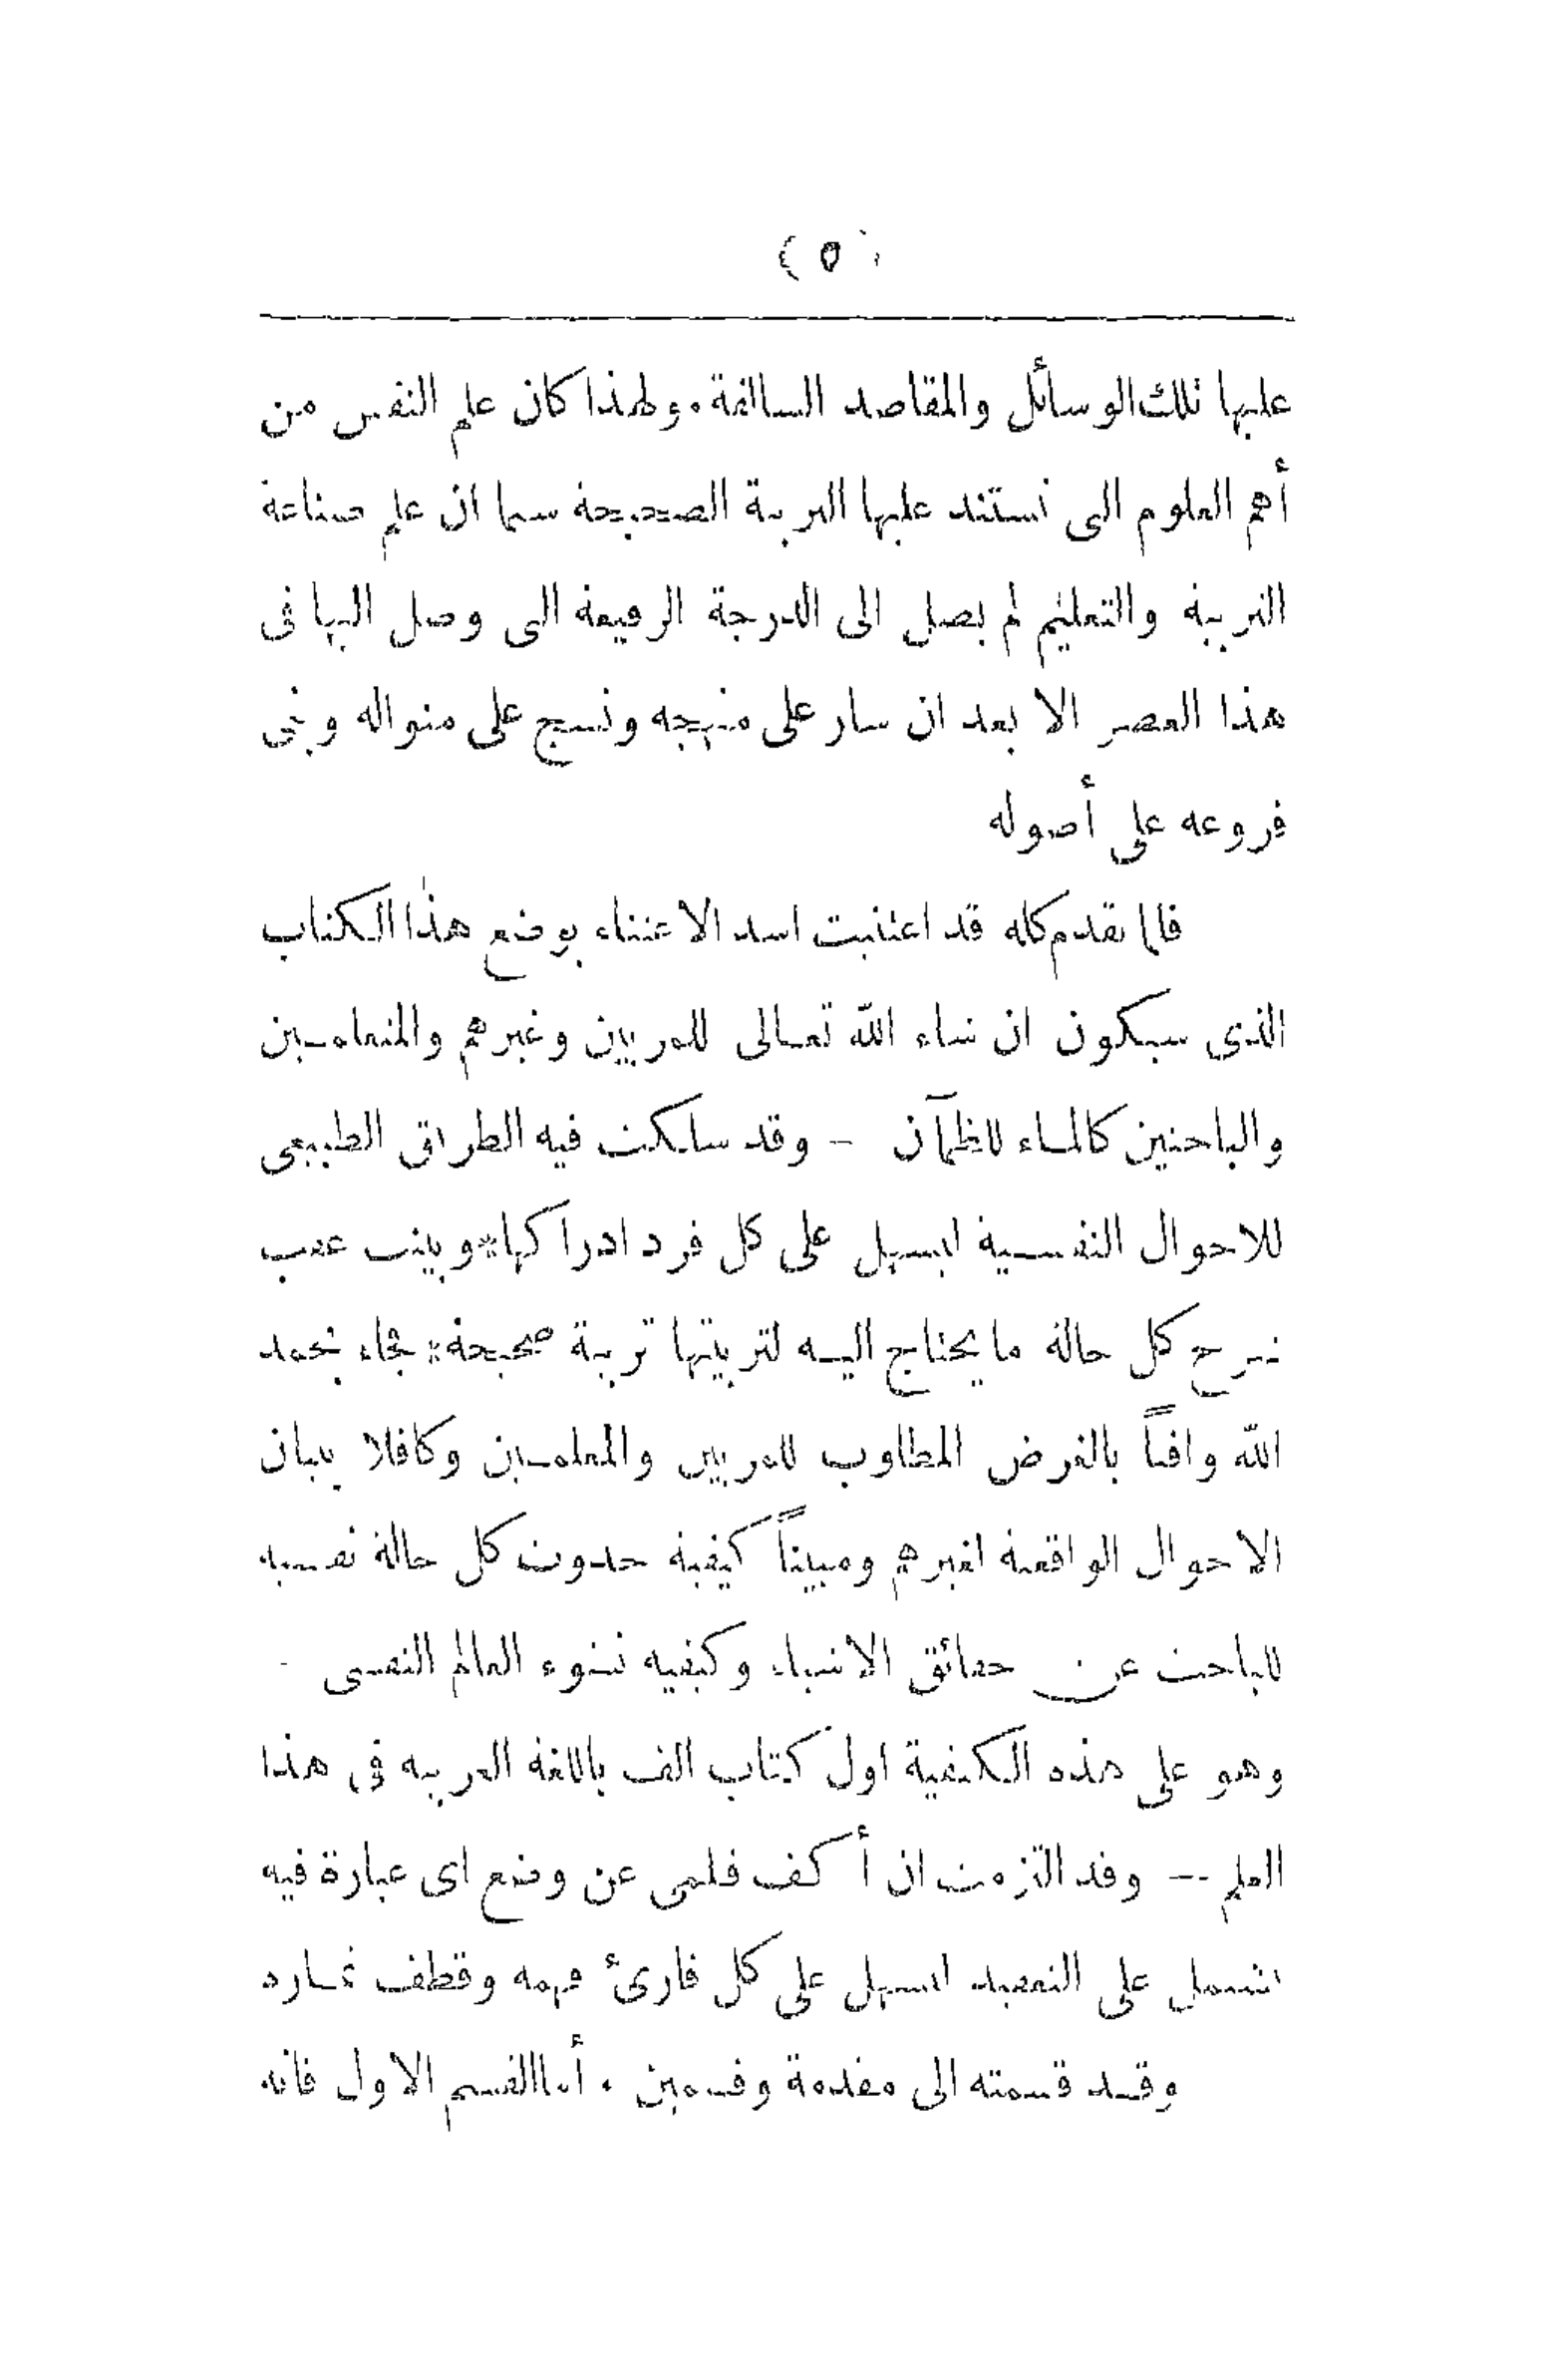 (٥)
عليها تلك الوسائل والمقاصد السالفة. ولهذا كان علم النفس من
أهم العلوم التى تستند عليها التربية الصحيحة سيما ان علم صناعة
التربية والتعليم لم يصل الى الدرجة الرفيعة التى وصل اليها فى
هذا العصر الا بعد ان سار على منهجه ونسج على منواله وبنى
فروعه على أصوله
فلما تقدم كله قد اعتنيت اشد الاعتناء بوضع هذا الكتاب
الذى سيكون ان شاء الله تعالى للمربين وغيرهم والمتعلمين
والباحثين كالماء للظمآن – وقد سلكت فيه الطريق الطبيعى
للاحوال النفسية ليسهل على كل فرد ادراكها* وبينت عقب
شرح كل حالة ما يحتاج اليه لتربيتها تربية صحيحة* فجاء بحمد
الله وافياً بالغرض المطلوب للمربين والمعلمين وكافلا ببيان
الاحوال الواقعة لغيرهم ومبيناً كيفية حدوث كل حالة نفسية
للباحث عن حقائق الاشياء وكيفية نشوء العالم النفسى -
وهو على هذه الكيفية اول كتاب الف باللغة العربية فى هذا
العلم -- وقد التزمت ان أكف قلمى عن وضع اى عبارة فيه
تشمل على التعقيد ليسهل على كل قارئ فهمه وقطف ثماره
وقد قسمته الى مقدمة وقسمين . أما القسم الاول فانه